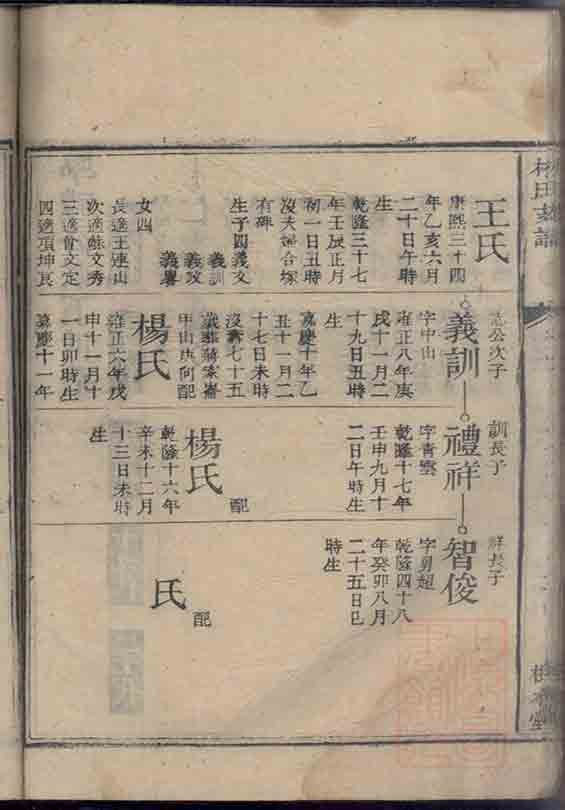 王氏
康熙三十四
年乙亥六月
二十日午時
生
乾隆三十七
年壬辰正月
初一日丑時
沒夫婦合塚
有碑
生子四義文
義訓
義攷
義舉
女四
長適王連山
次適蘇文秀
三適曾文定
四適項坤良
志公次子
義訓
字中山
雍正八年庚
戌十一月二
十九日丑時
生
嘉慶十年乙
丑十一月二
十七日未時
沒壽七十五
歲葬蔣家崙
甲山庚向配
楊氏
雍正六年戊
申十一月十
一日卯時生
嘉慶十一年
訓長子
禮祥
字青雲
乾隆十七年
壬申九月十
二日午時生
配
楊氏
乾隆十六年
辛未十二月
十三日未時
生
祥長子
智俊
字勇超
乾隆四十八
年癸卯八月
二十五日巳
時生
配
氏